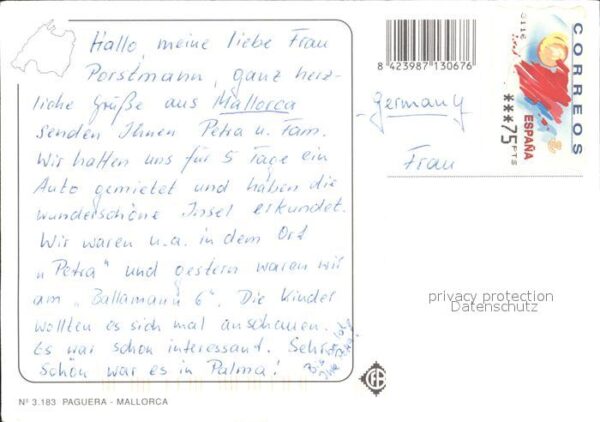 Hallo, meine liebe Frau
Porstmann, ganz herz-
liche Grüße aus Mallorca
senden Ihnen Petra u. Fam.
Wir hatten uns für 5 Tage ein
Auto gemietet und haben die
wunderschöne Insel erkundet.
Wir waren u.a. in dem Ort
„Petra" und gestern waren wir
am „Ballamann 6". Die Kinder
wollten es sich mal anschauen.
Es war schon interessant. Sehr
schön war es in Palma!
Ihre Petra!
Nº 3.183 PAGUERA - MALLORCA
8 423987 130676
Germany
Frau
CORREOS
ESPAÑA
***75 PTS
privacy protection
Datenschutz